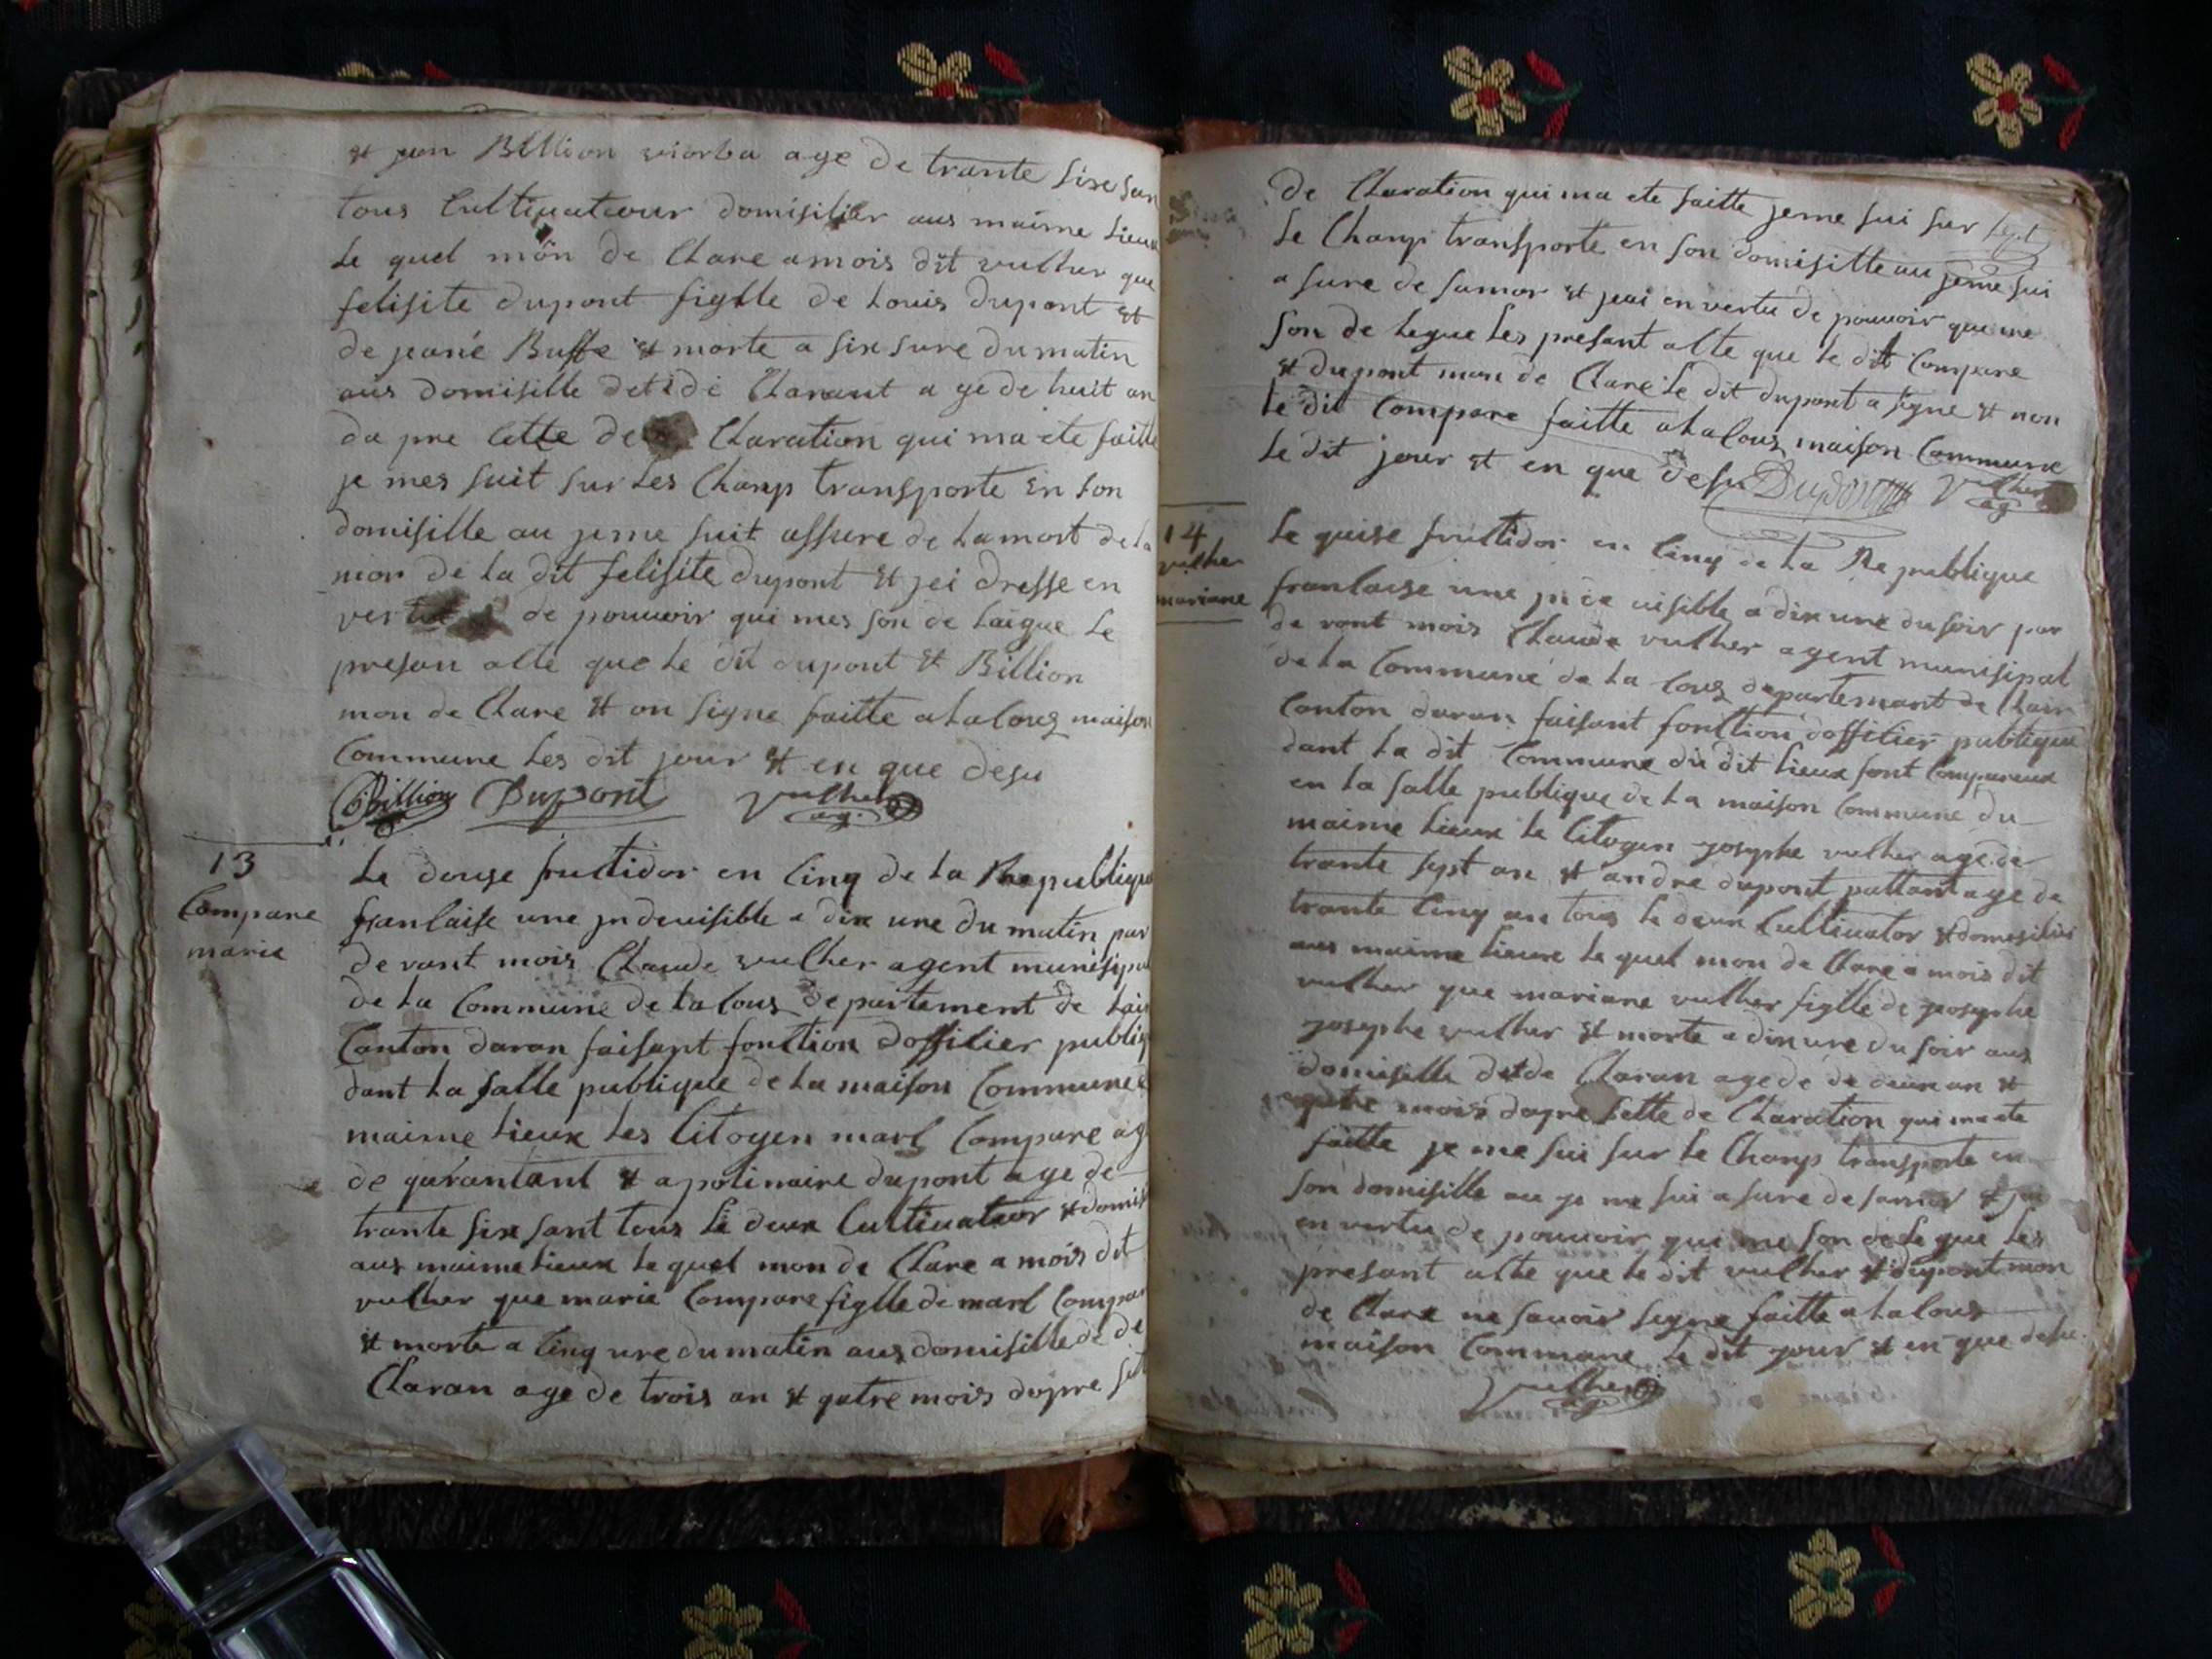 et jean Billion viorba age de trante sixe san
tous Cultivateour domisilier aus maime Lieux
Le quel mon de Clare amois dit vulher que
felisite dupont figlle de Louis dupont et
de jeane Buffe et morte a six sure dumatin
aus domisille de Clarant a ge de huit an
da pre Cette de Claration qui ma ete faitte
je mes suit sur Les Chanp transporte En son
domisille au jeme suit assure de Lamort de La
mor de La dit felisite dupont et jei dresse en
de pouvoir qui mes son de Laigue Le
presan alte que Le dit dupont et Billion
mon de Clare et on signe faitte a La Couz maison
Commune Les dit jour et en que desu
Billion Dupont Vulher ag.
13
Compare
marie
Le douze fructidor en Cinq de La Republique
francaise une jndevisible a dix une du matin par
de vant mois Claude vulher agent munisipal
de La Commune de La Couz departement de Lain
Canton daran faisant fonction dofficier publiq
dant La salle publique de La maison Commune
maime Lieux Les Citoyen marc Compare ag
de garantant et apolinaire dupont age de
trante six sant tous Le deux Cultivateur et domis
aus maime Lieux Le quel mon de Clare a mois dit
vulher que marie Compare figlle de marc Compar
et morte a Cinq ure dumatin aus domisille de de
Claran age de trois an et qatre mois dapre set
de Claration qui ma ete faitte jeme sui sur
Le Chanp transporte en son domisille au jeme sui
a sure de samor et jeai en vertu de pouvoir que me
son de Legue Les presant alte que Le dit Compare
et dupont mon de Clare Le dit dupont a signe et non
Le dit Compare faitte a La Couz maison Commune
Le dit jour et en que desu Dupont Vulher ag
14
vulher
mariane
Le quise fructidor en Cinq de La Republique
francaise une visible a dix une du soir par
de vant mois Claude vulher agent munisipal
de La Commune de La Couz departemant de Lain
Canton daran faisant fonction dofficier publique
dant La dit Commune du dit Lieux sont Compareux
en La salle publique de La maison Commune du
maime Lieux Le Citoyen josephe vulher age de
trante sept an et andre dupont age de
trante Cinq an tous Le deux Cultivator et domesilier
aus maime Lieux Le quel mon de Clare a mois dit
vulher que mariane vulher figlle de josephe
josephe vulher et morte a dix ure du soir aus
domisille de Claran age de de deux an et
qatre mois dapre sette de Claration qui ma ete
faitte je me sui sur Le Chanp transporte en
son domisille au je me sui a sure de samor et jai
en vertu de pouvoir qui me son de Le gue Les
presant alte que Le dit vulher et dupont mon
de Clare ne savoir signe faitte a La Couz
maison Commune Le dit jour et en que desu
Vulher ag.